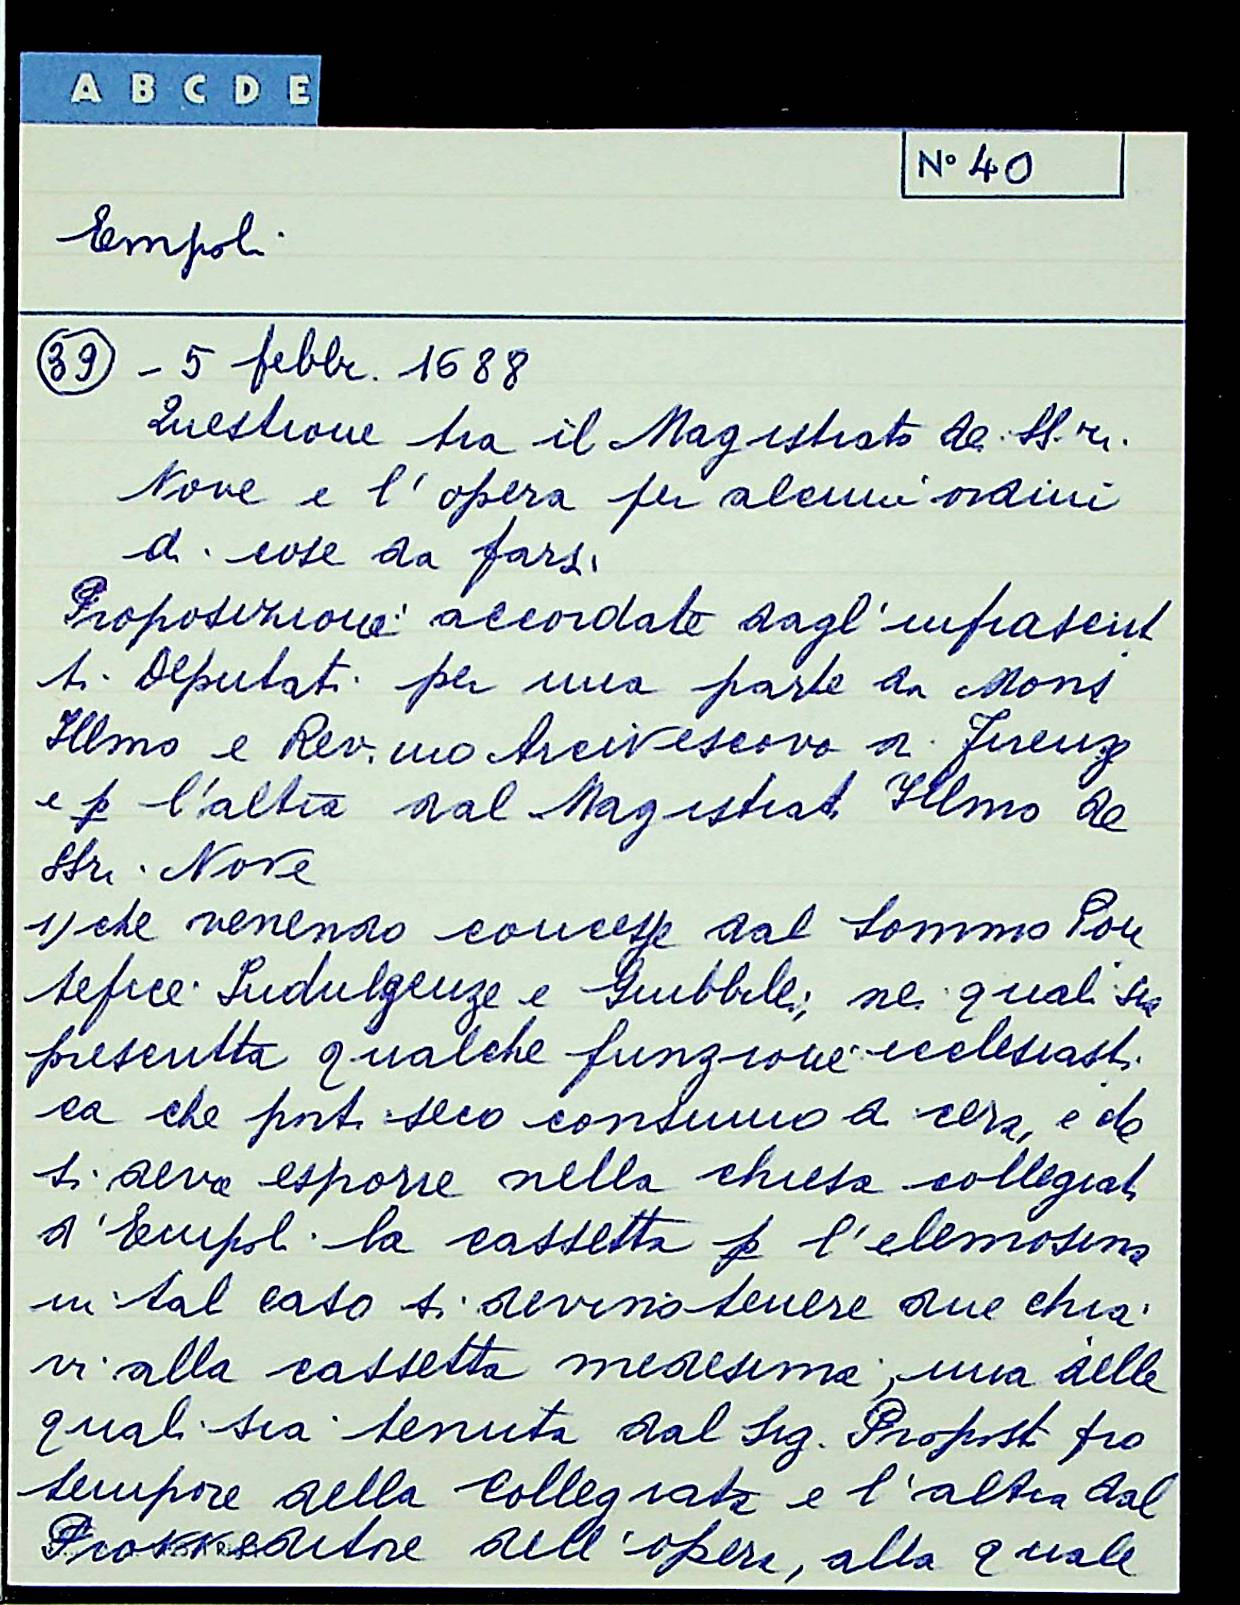 A B C D E
N° 40
Empoli
39 - 5 febbr. 1688
Questione tra il Magistrato de SS.ri.
Nove e l'opera per alcuni ordini
di cose da farsi
Proposizioni accordate dagl'infrascrit
ti Deputati per una parte da Mons
Illmo e Rev.mo Arcivescovo di Firenze
e p l'altra dal Magistrat Illmo de
SSri. Nove
1) che venendo concesse dal Sommo Pon
tefice Indulgenze e Giubbilei, ne quali sia
prescritta qualche funzione ecclesiasti
ca che porti seco consumo di cera, e che
si deva esporre nella chiesa collegiata
d'Empoli la cassetta p l'elemosina
in tal caso si devino tenere due chia
vi alla cassetta medesima, una delle
quali sia tenuta dal Sig. Proposto pro
tempore della Collegiata e l'altra dal
Provveditore dell'opera, alla quale